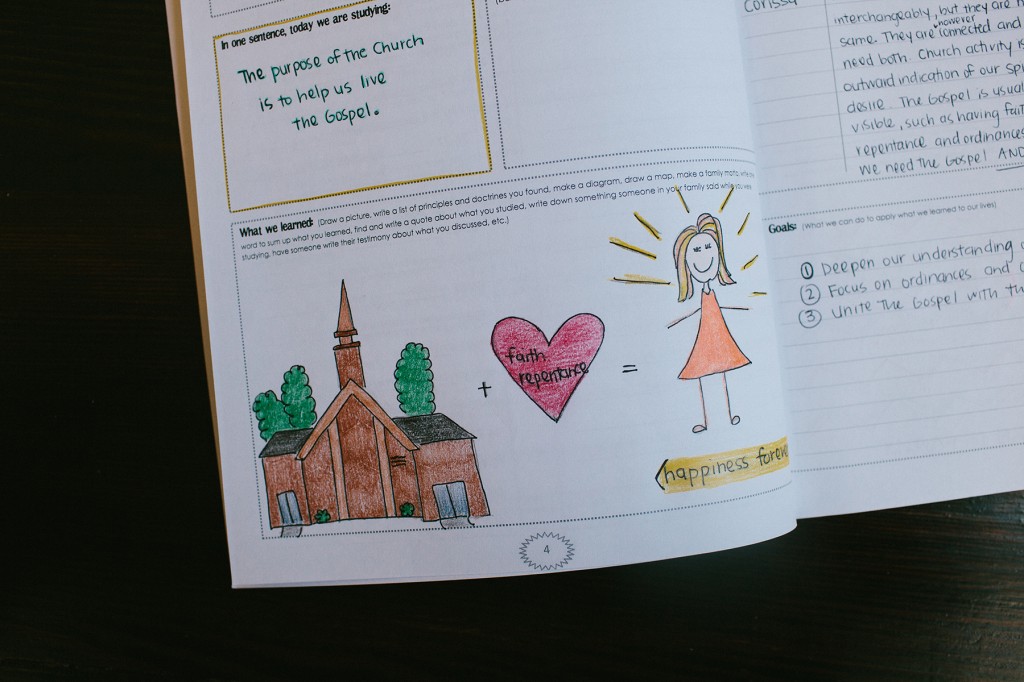 In one sentence, today we are studying:
The purpose of the Church
is to help us live
the Gospel.
What we learned: (Draw a picture, write a list of principles and doctrines you found, make a diagram, draw a map, make a family motto, write one
word to sum up what you learned, find and write a quote about what you studied, write down something someone in your family said while you were
studying, have someone write their testimony about what you discussed, etc.)
+
faith
repentance
=
happiness
4
Corissa
interchangeably, but they are
however
same. They are connected and
need both. Church activity is
outward indication of our
desire. The Gospel is
visible, such as having
repentance and
We need the Gospel AND
Goals: (What we can do to apply what we learned to our lives)
① Deepen our understanding
② Focus on ordinances and
③ Unite the Gospel with